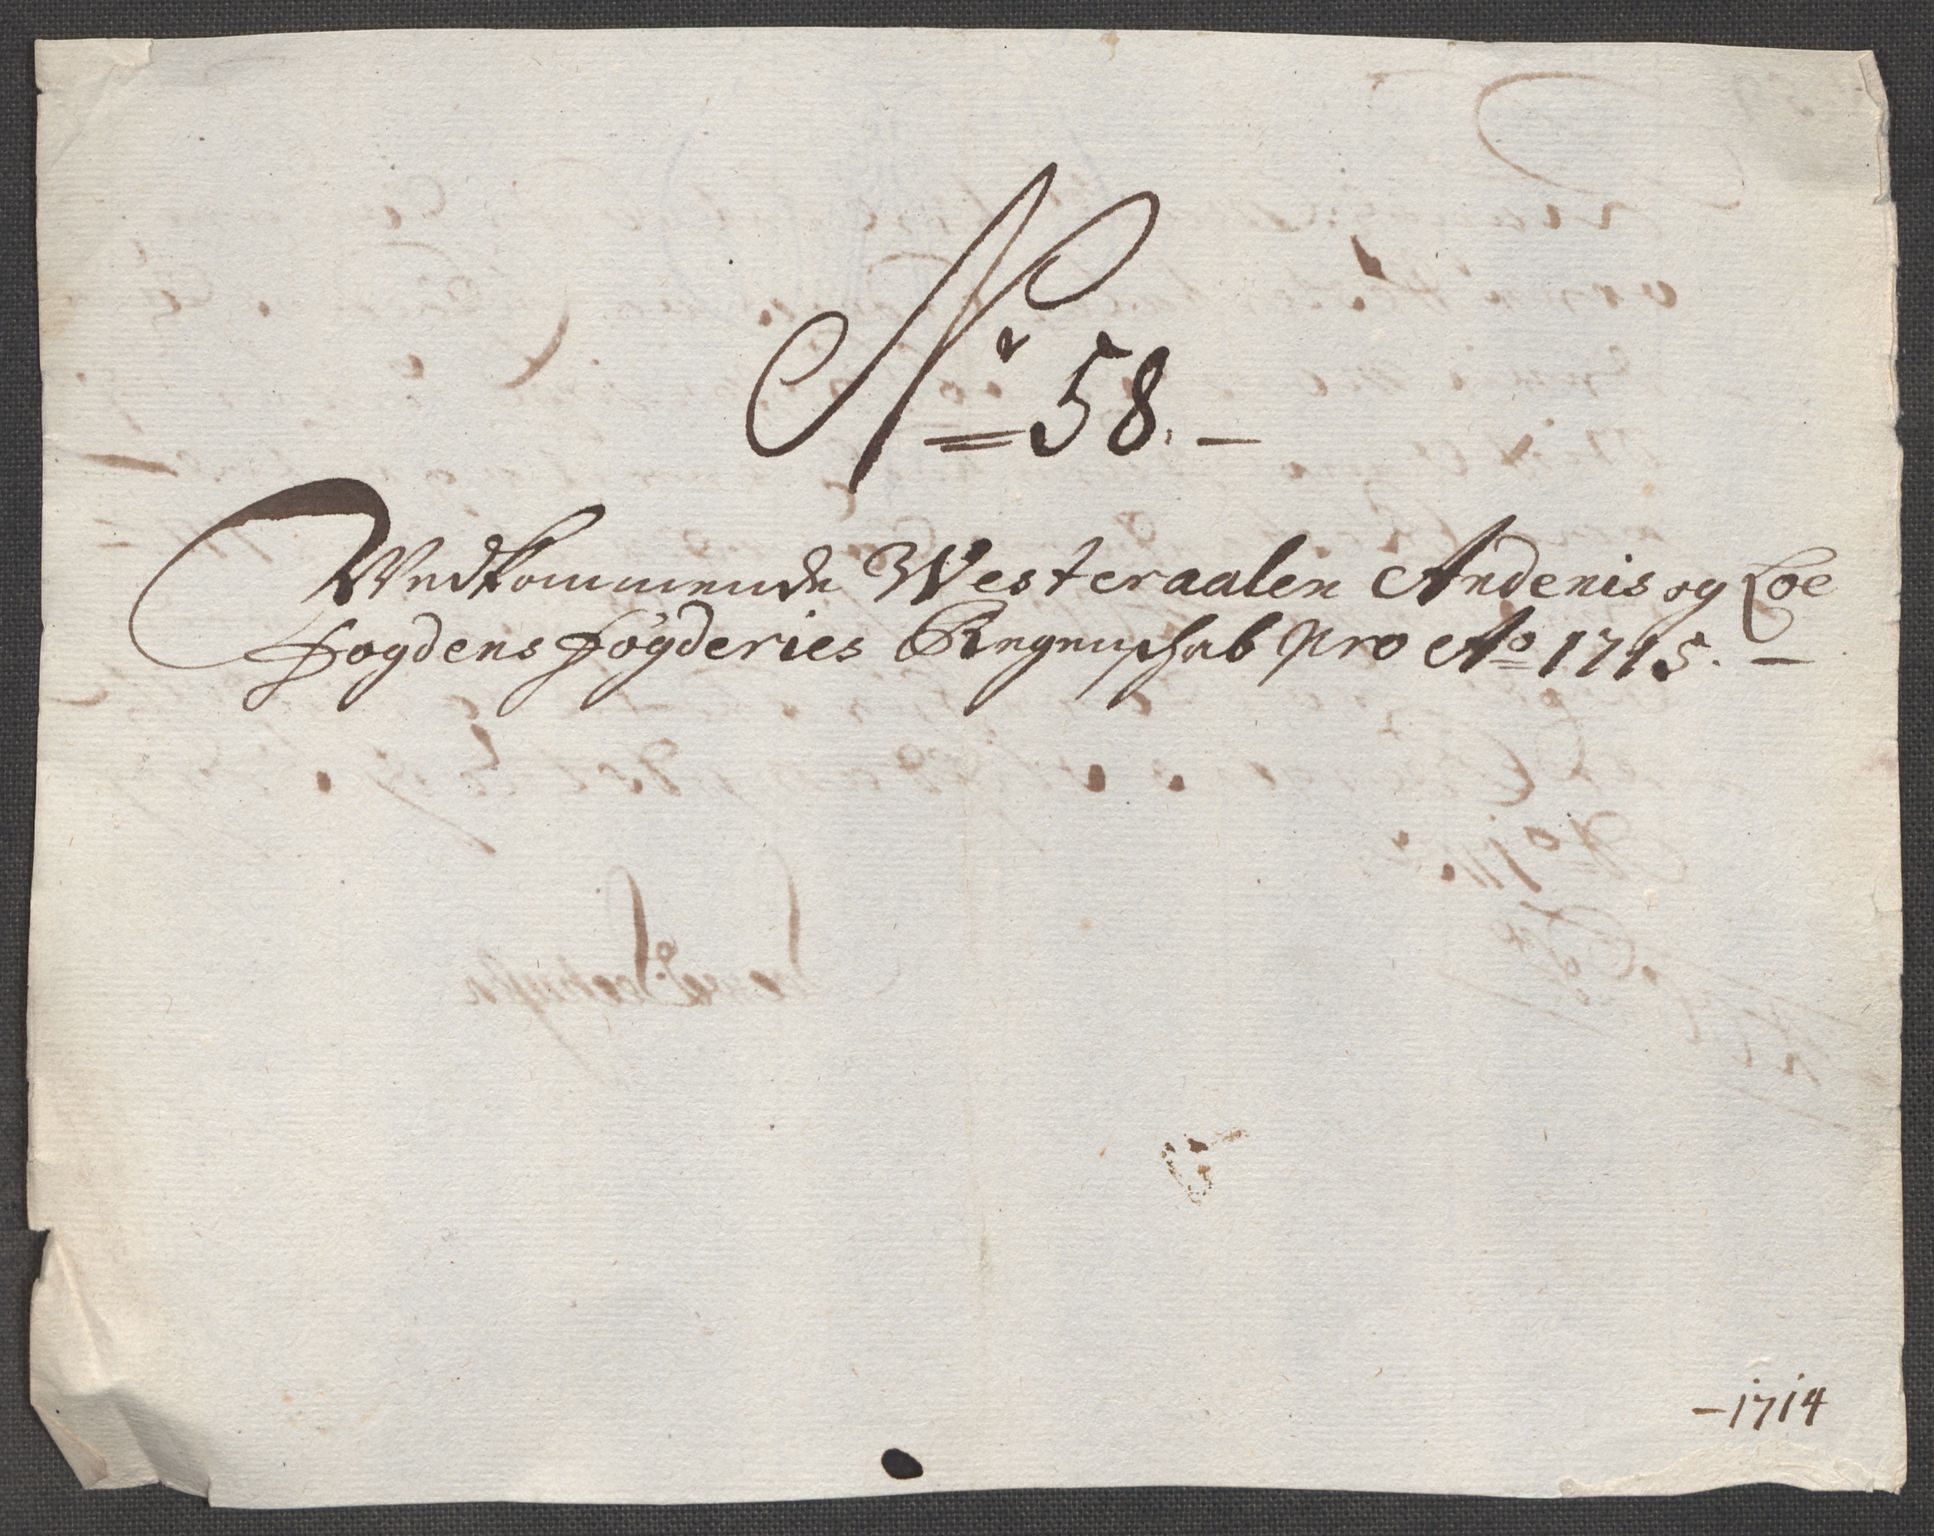 Nr 58. —
Vedkommende Westeraalen Andenis og Loe
fogdens fögderies Regenschab pro Ao 1715. —
— 1714